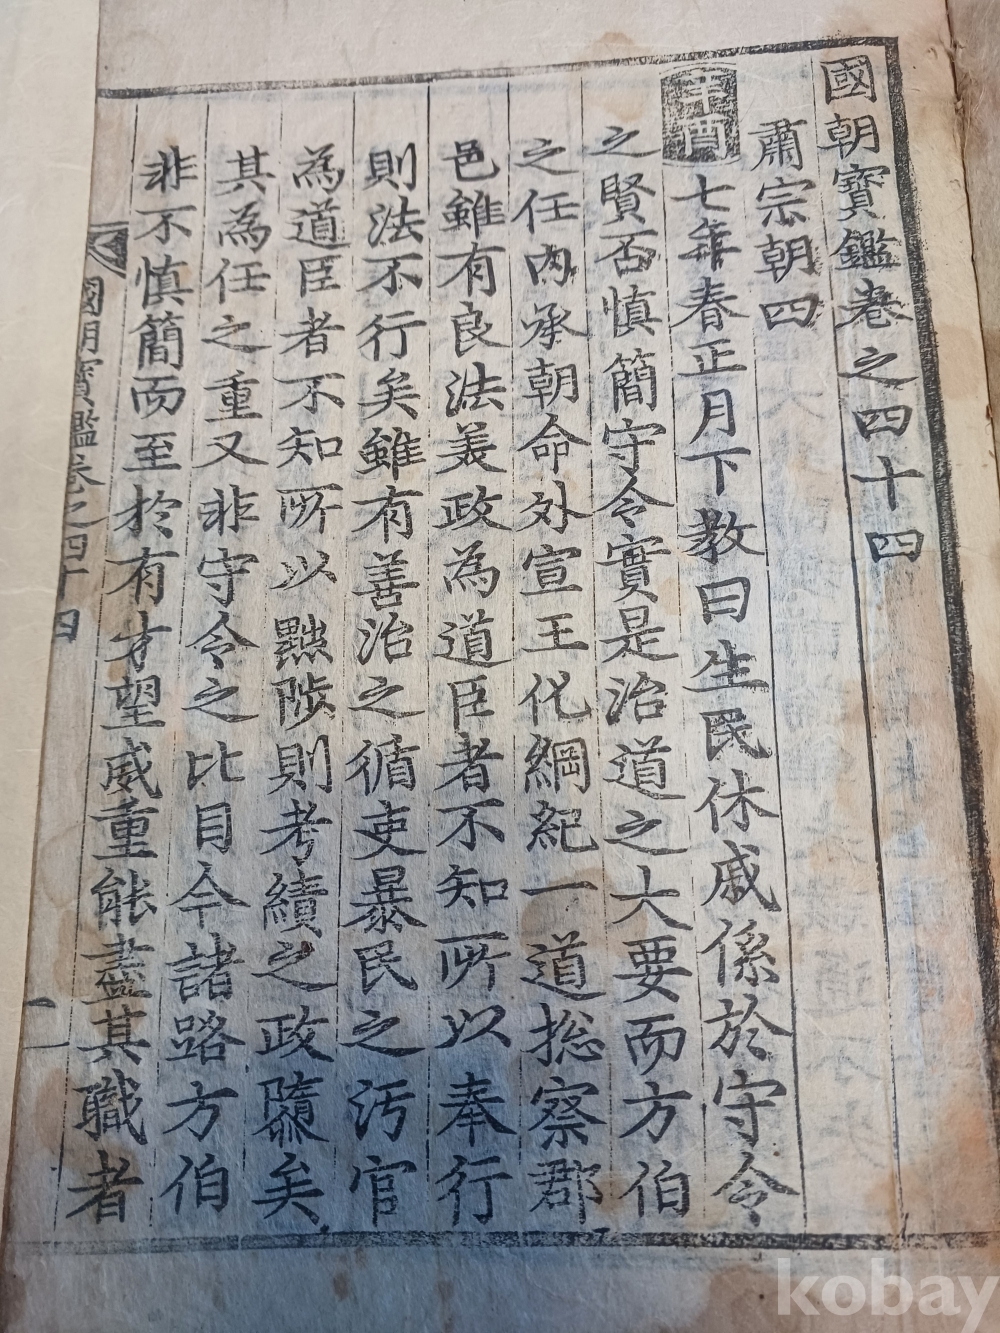 國朝寶鑑卷之四十四
肅宗朝四
辛酉七年春正月下教曰生民休戚係於守令
之賢否慎簡守令實是治道之大要而方伯
之任內承朝命外宣王化綱紀一道捴察郡
邑雖有良法美政為道臣者不知所以奉行
則法不行矣雖有善治之循吏暴民之污官
為道臣者不知所以黜陟則考績之政隳矣
其為任之重又非守令之比目今諸路方伯
非不慎簡而至於有才望威重能盡其職者
國朝寶鑑卷之四十四
kobay